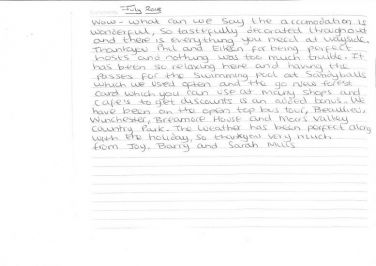 July 2018
Wow - what can we say the accomodation is
wonderful, so tastefully decorated throughout
and there is everything you need at wayside.
Thankyou Phil and Eileen for being perfect
hosts and nothing was too much trouble. It
has been so relaxing here and having the
passes for the swimming pool at Sandyballs
which we used often and the go New forest
card which you can use at many shops and
cafe's to get discounts is an added bonus. We
have been on the open top bus tour, Beaulieu,
Winchester, Breamore House and Moors Valley
Country Park. The weather has been perfect along
with the holiday, so thankyou very much
from Joy, Barry and Sarah Mills